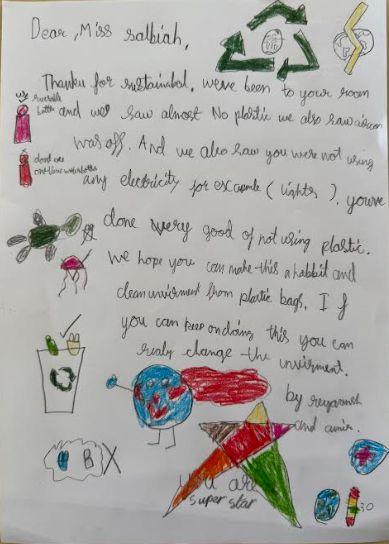 Dear, Miss Salbiah,
Thanku for sustainabel, weve been to your room
and we saw almost No plastic we also saw aircon
was off. And we also saw you were not using
any electricity for excample ( lights ), youve
done very good of not using plastic.
We hope you can make this a habbit and
clean unvirment from plastic bags. If
you can keep on doing this you can
realy change the unvirment.
by reyaansh
and amir.
use
reuseable
bottle
dont use
one-time waterbottles
B X
you are
super star